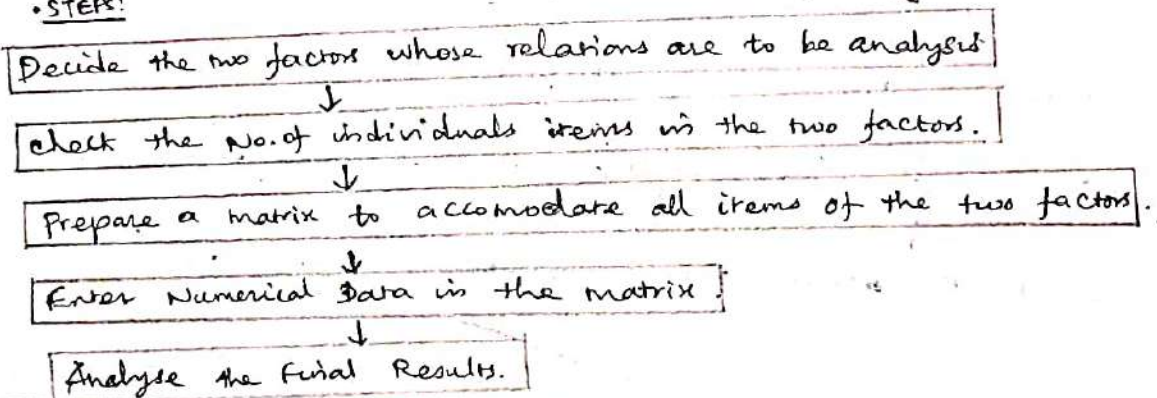 • STEPS:
Decide the two factors whose relations are to be analysis
check the No. of individuals items in the two factors.
Prepare a matrix to accomodate all items of the two factors.
Enter Numerical Data in the matrix.
Analyse the Final Results.